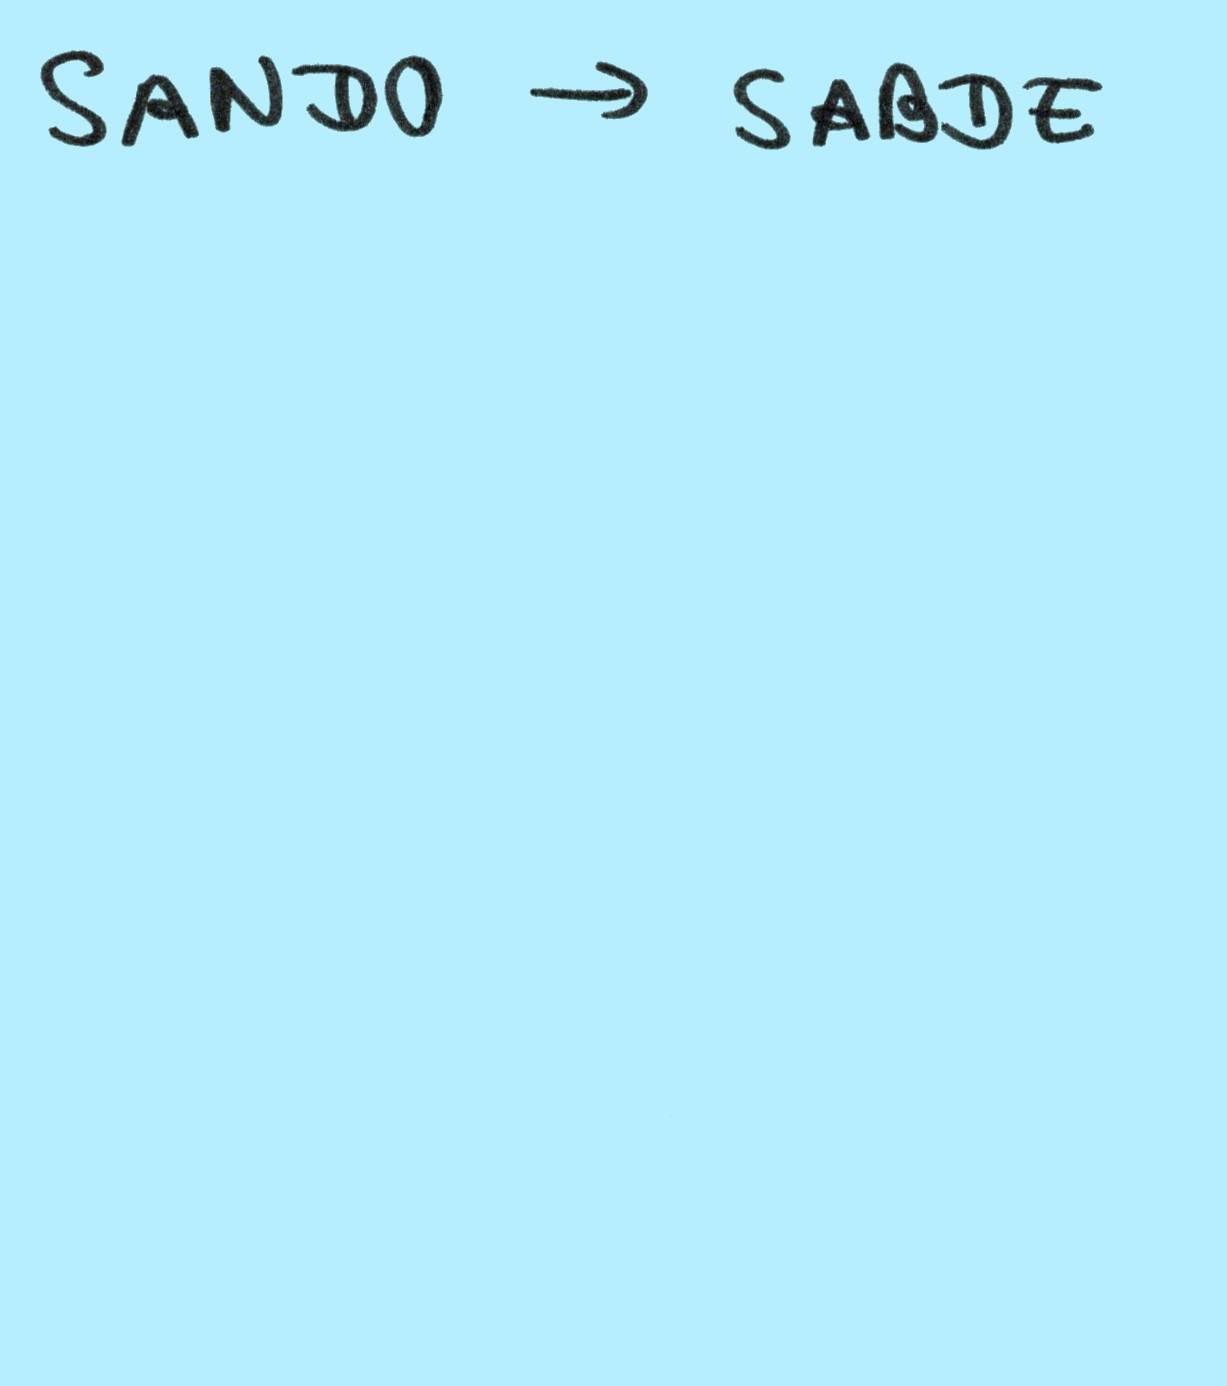 SANDO → SABDE